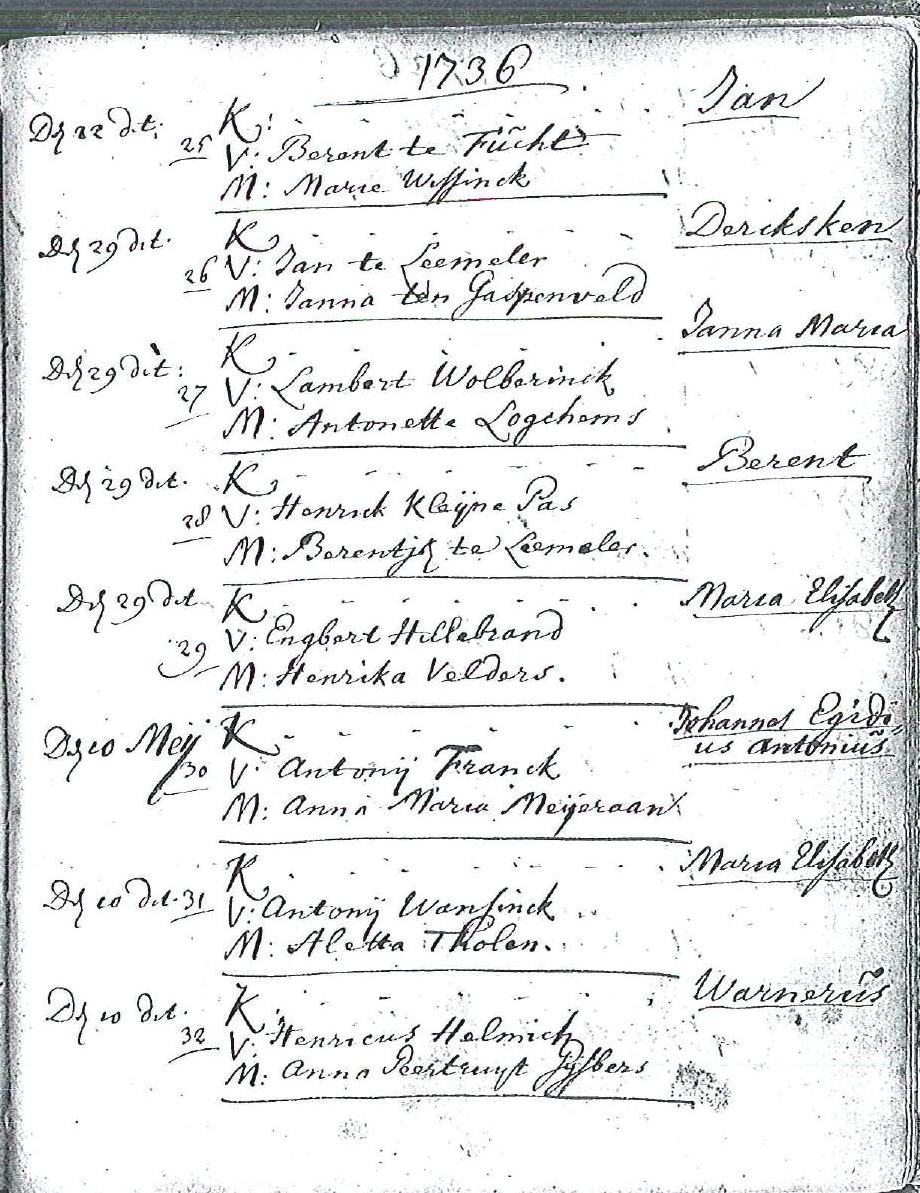 1736
Den 22 dit: K: Jan
25 V: Berent te Fücht
M: Marie Wissinck
Den 29 dit. K Dercksken
26 V: Jan te Leemeler
M: Janna ten Gaspenveld
Den 29 dit: K Janna Maria
27 V: Lambert Wolberinck
M: Antonette Logchems
Den 29 dit. K Berent
28 V: Henrick Kleÿne Pas
M: Berentjen te Leemeler.
Den 29 dit K Maria Elisabeth
29 V: Engbert Hillebrand
M: Henrika Velders.
Den 10 Meij K Johannes Egidi-
us Antoniüs
30 V: Antonij Franck
M: Anna Maria Meijeraan
Den 10 dit. K Maria Elisabeth
31 V: Antonij Wansinck
M: Aletta Tholen.
Den 10 dit. K Warneriüs
32 V: Henricus Helmich
M: Anna Geertruyt Gysbers